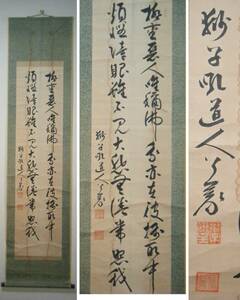 極重惡人唯稱佛我亦在彼攝取中
煩惱障眼雖不見大悲無倦常照我
獅子吼道人
極重惡人唯稱佛我亦在彼攝取中
煩惱障眼雖不見大悲無倦常照我
獅子吼道人
獅子吼道人